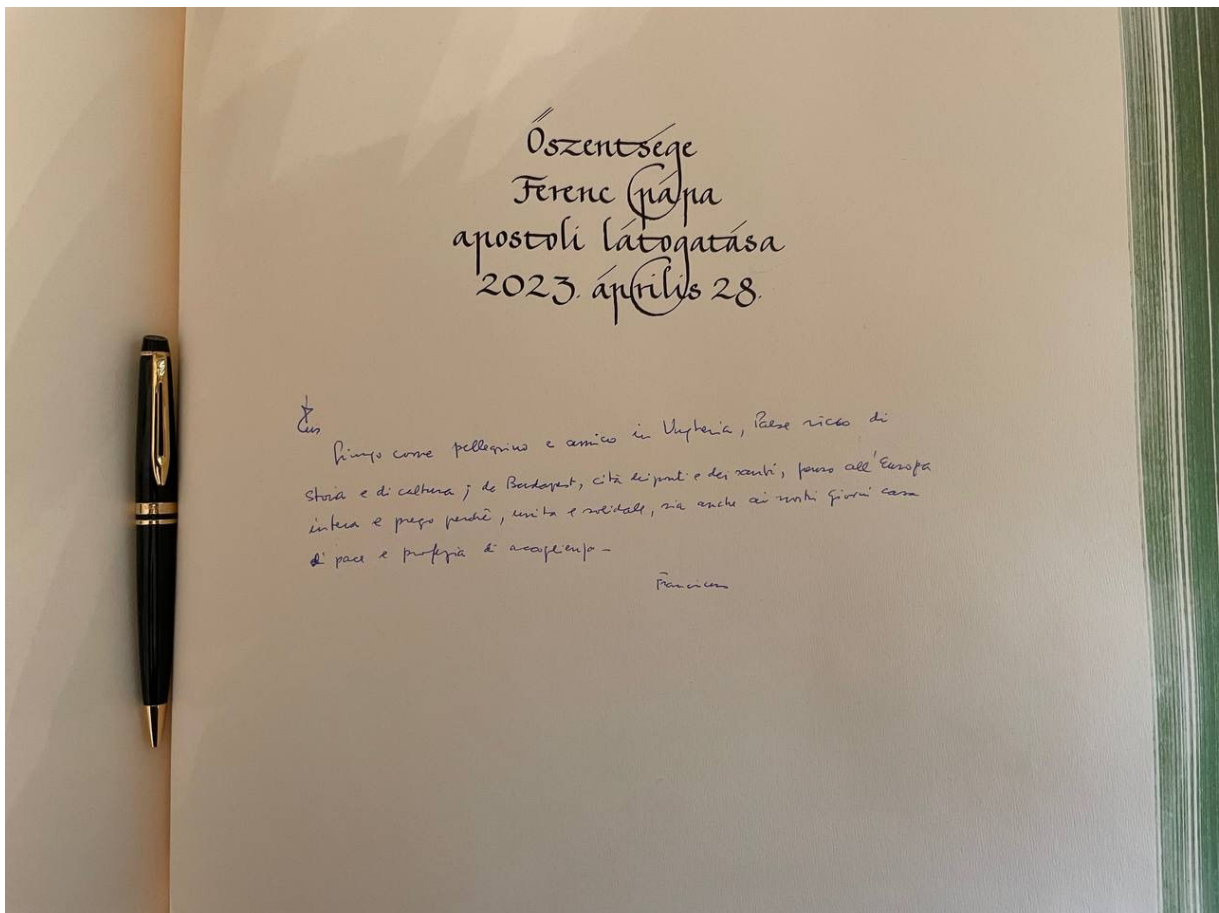 Őszentsége
Ferenc pápa
apostoli látogatása
2023. április 28.
Giungo come pellegrino e amico in Ungheria, Paese ricco di
storia e di cultura; da Budapest, città dei ponti e dei santi, penso all'Europa
intera e prego perché, unita e solidale, sia anche ai nostri giorni casa
di pace e profezia di accoglienza -
Franciscus